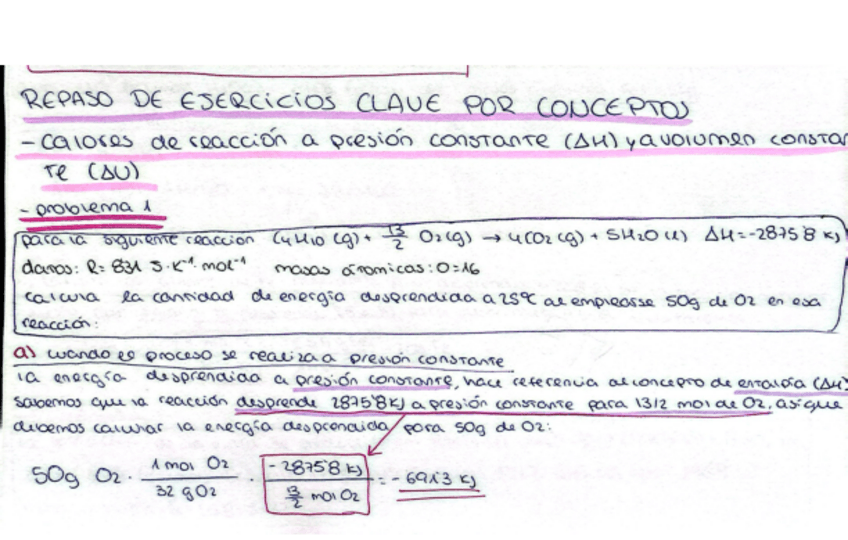 REPASO DE EJERCICIOS CLAVE POR CONCEPTOS
- Calores de reacción a presión constante (ΔH) y a volumen constan-
te (ΔU)
- problema 1
para la siguiente reacción C4H10 (g) + 13/2 O2(g) → 4CO2 (g) + 5H2O (l) ΔH=-2875'8 kJ
danos: R= 8'31 J·K⁻¹·mol⁻¹ masas atómicas: O=16
calcula la cantidad de energía desprendida a 25ºC al emplearse 50g de O2 en esa
reacción:
a) cuando el proceso se realiza a presión constante
la energía desprendida a presión constante, hace referencia al concepto de entalpía (ΔH)
sabemos que la reacción desprende 2875'8 kJ a presión constante para 13/2 mol de O2, así que
debemos calcular la energía desprendida para 50g de O2:
50g O2 · 1 mol O2 / 32 g O2 · -2875'8 kJ / 13/2 mol O2 = -691'3 kJ